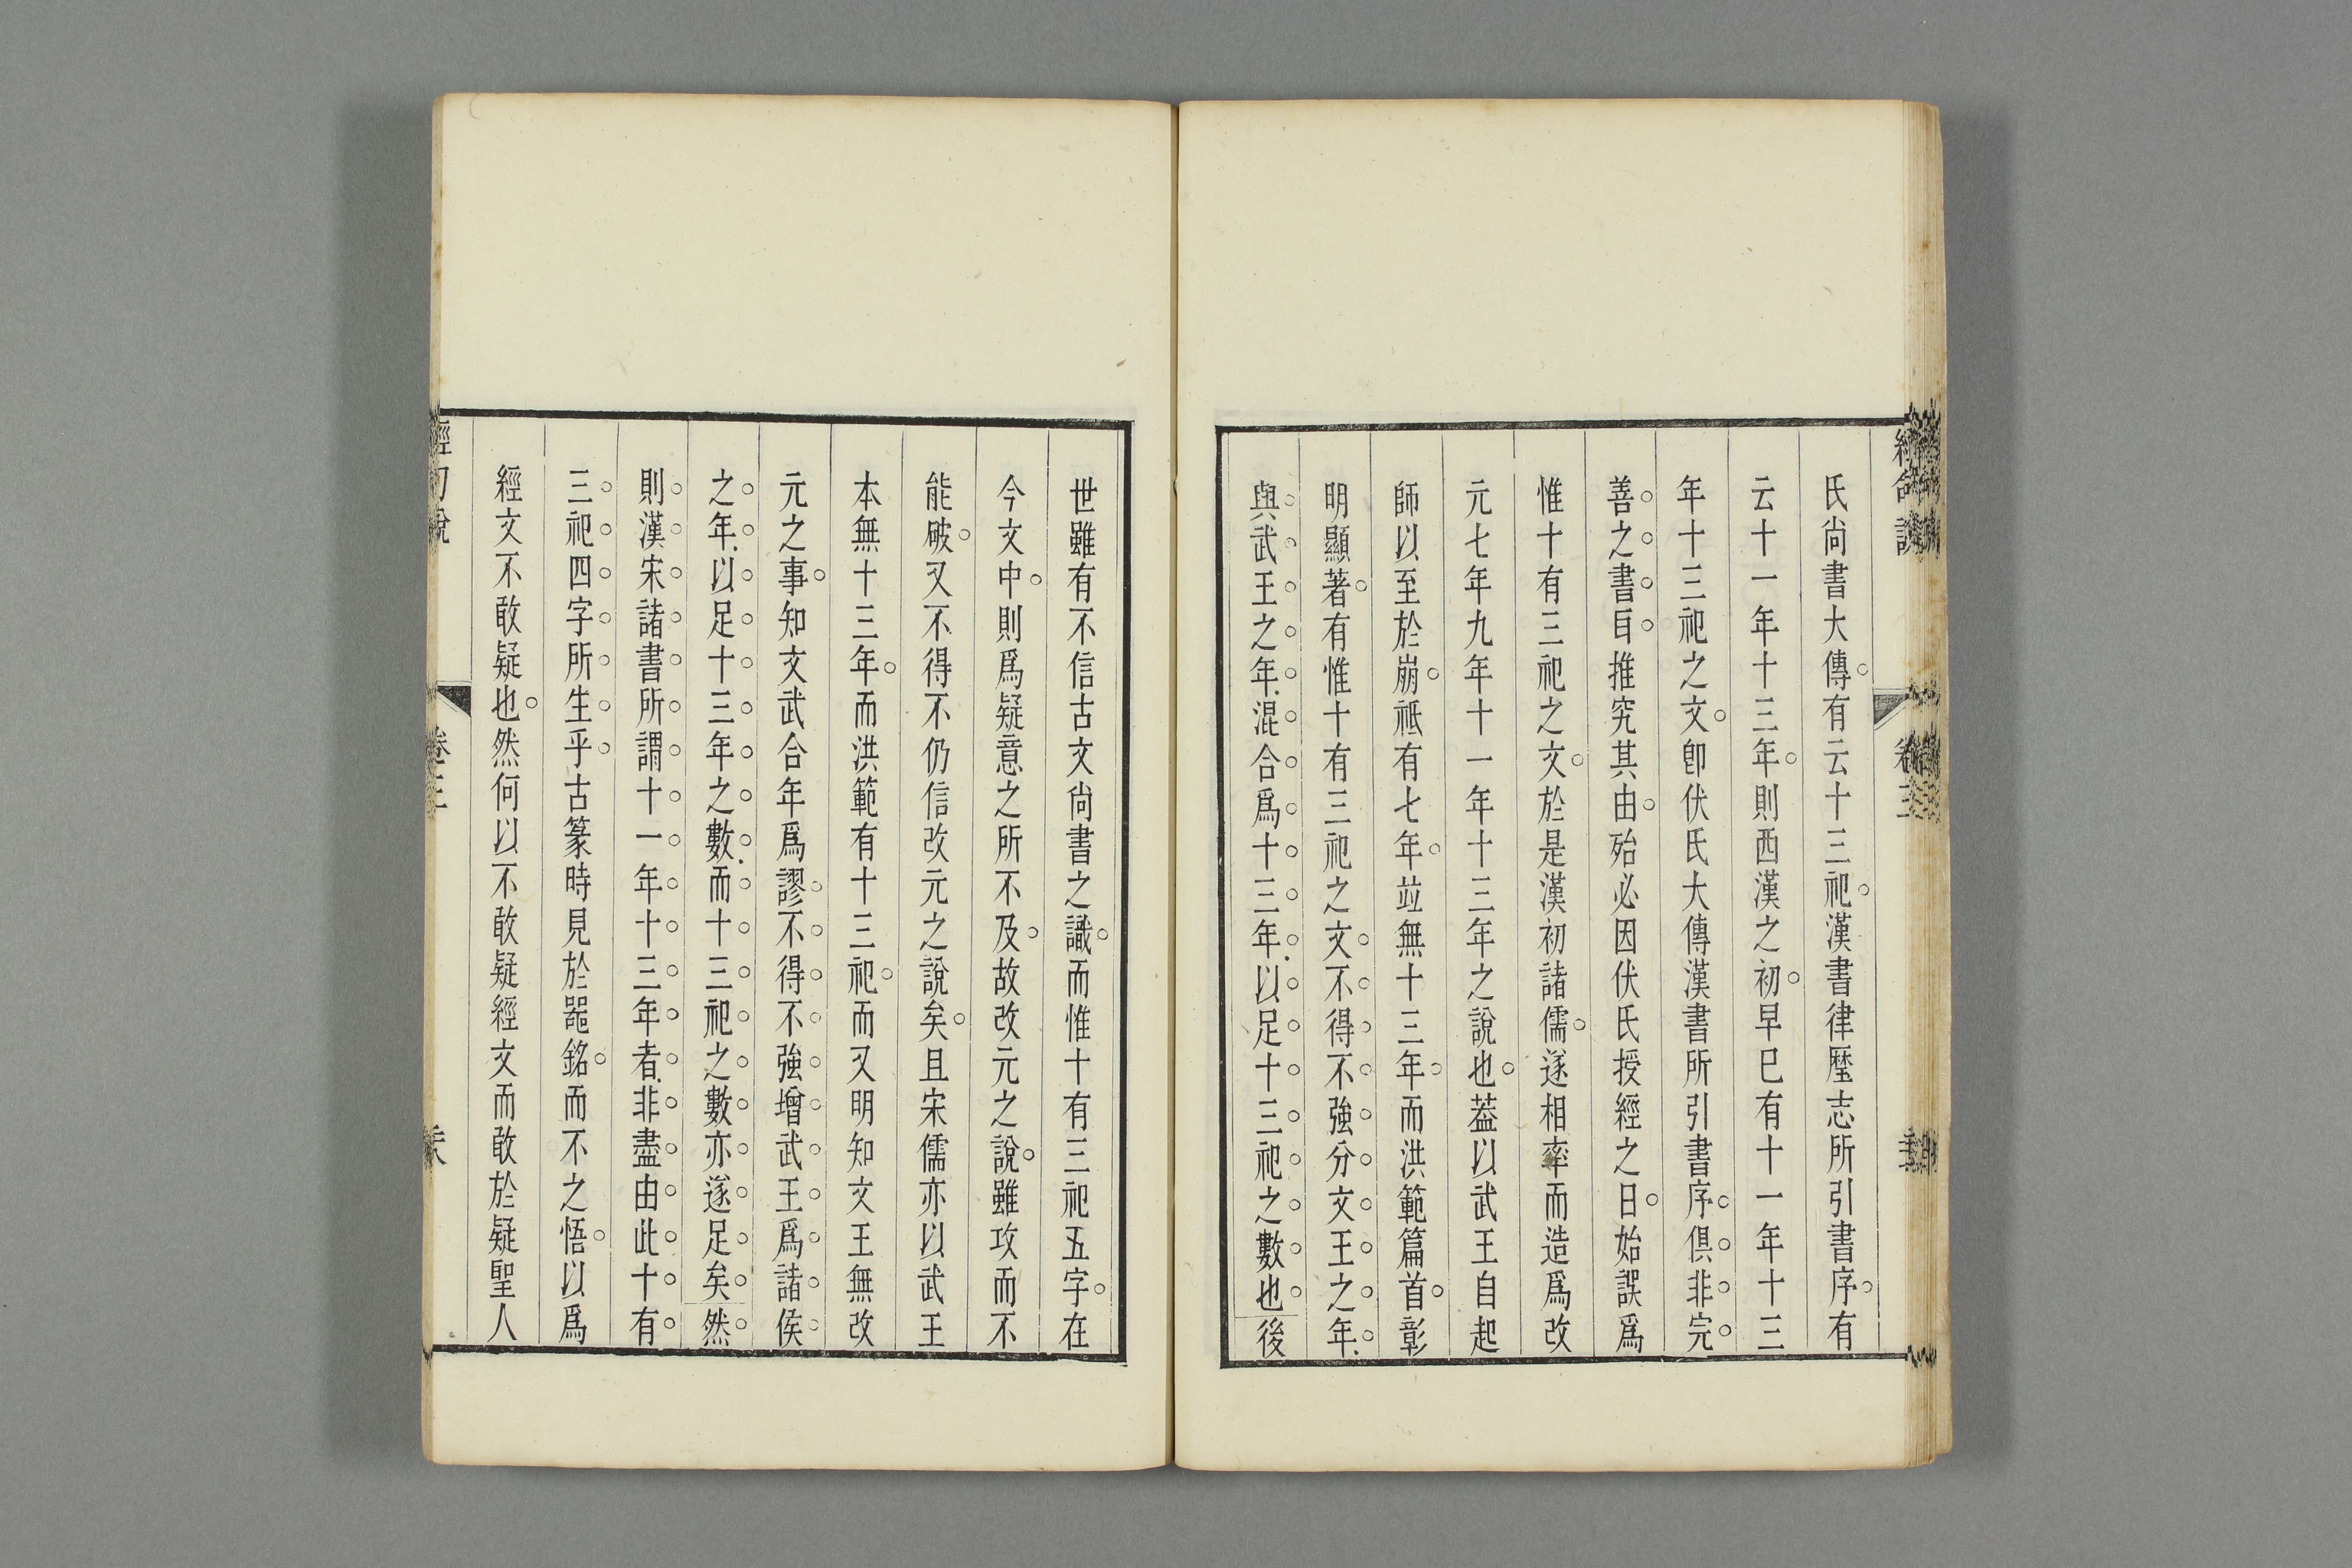 氏尚書大傳有云十三祀漢書律歷志所引書序有
云十一年十三年則西漢之初早巳有十一年十三
年十三祀之文卽伏氏大傳漢書所引書序俱非完
善之書㠯推究其由殆必因伏氏授經之日始誤爲
惟十有三祀之文於是漢初諸儒遂相率而造爲改
元七年九年十一年十三年之說也葢以武王自起
師以至於崩祗有七年竝無十三年而洪範篇首彰
明顯著有惟十有三祀之文不得不強分文王之年
與武王之年混合爲十三年以足十三祀之數也後
世雖有不信古文尚書之識而惟十有三祀五字在
今文中則爲疑意之所不及故改元之說雖攻而不
能破又不得不仍信改元之說矣且宋儒亦以武王
本無十三年而洪範有十三祀而又明知文王無改
元之事知文武合年爲謬不得不強增武王爲諸侯
之年以足十三年之數而十三祀之數亦遂足矣然
則漢宋諸書所謂十一年十三年者非盡由此十有
三祀四字所生乎古篆時見於器銘而不之悟以爲
經文不敢疑也然何以不敢疑經文而敢於疑聖人
卷三